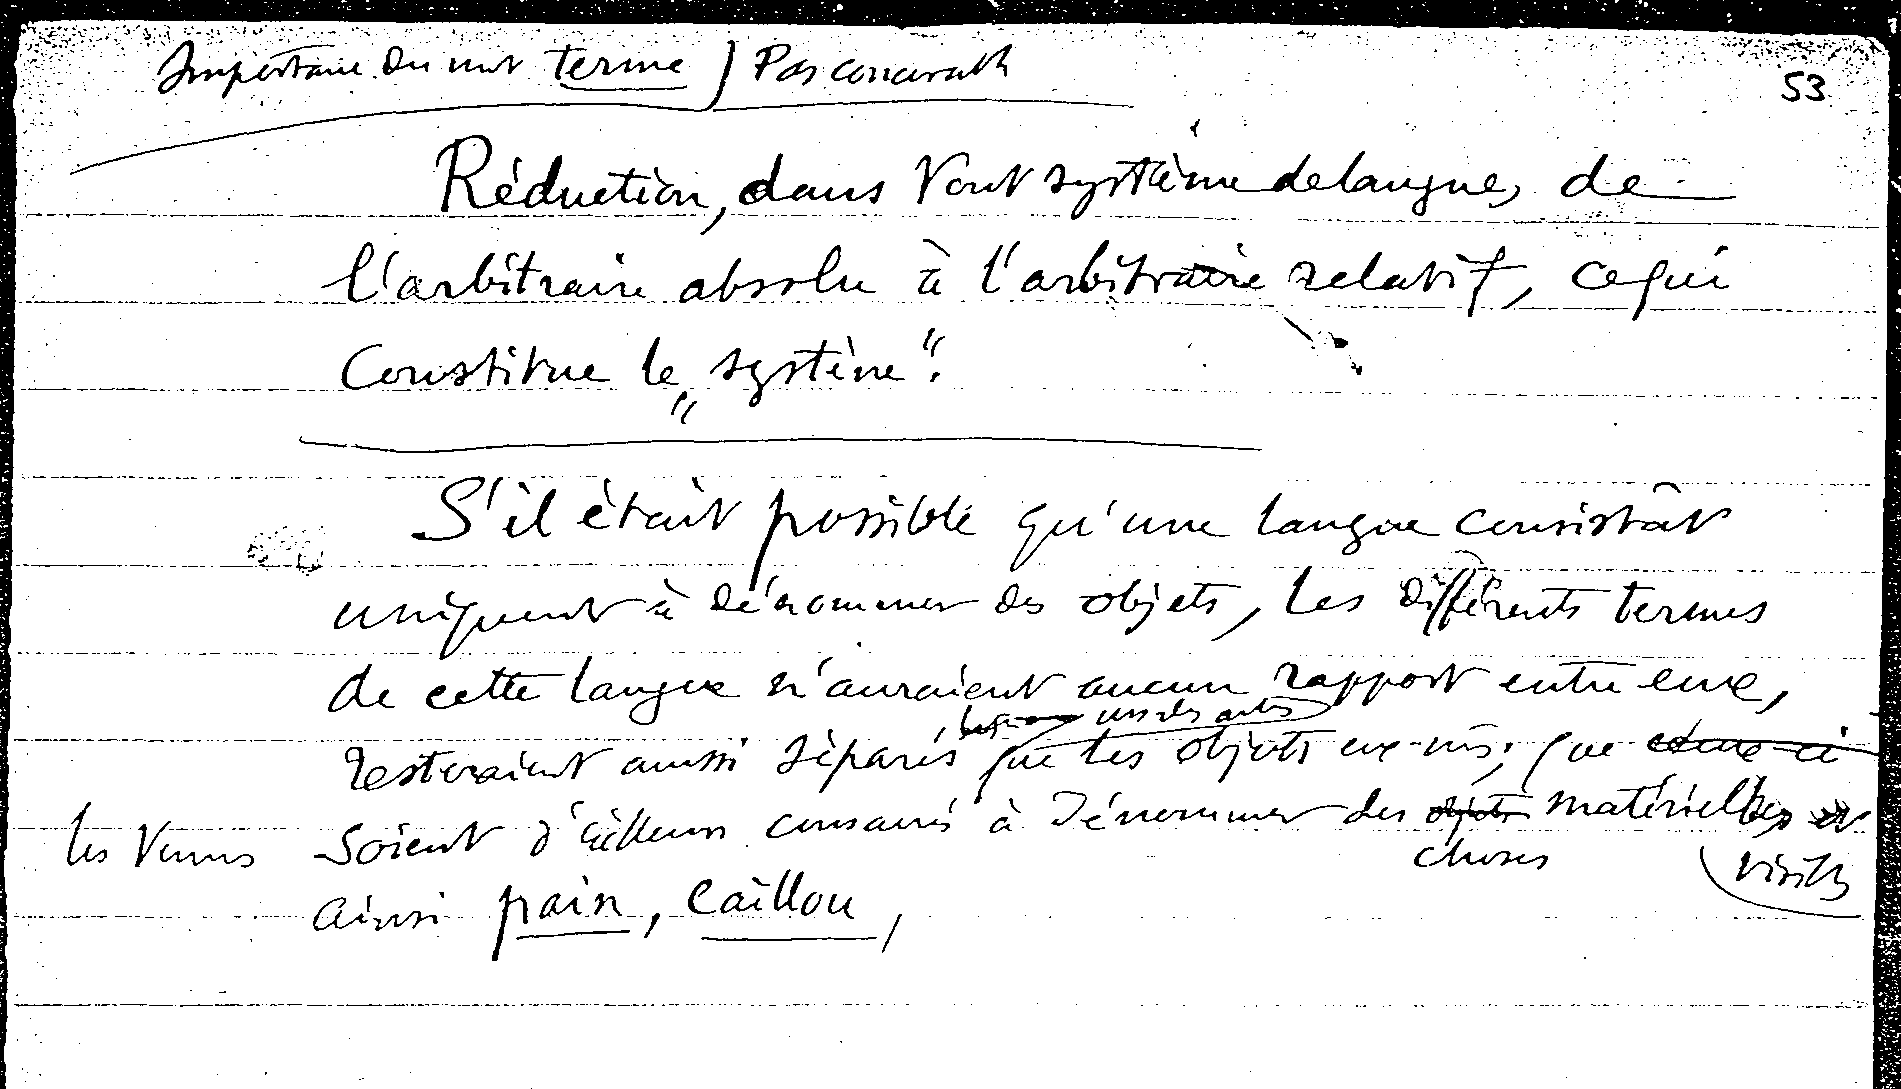 Importance du mot terme) Pas
53
Réduction, dans tout système de langue, de
l'arbitraire absolu à l'arbitraire relatif, ce qui
constitue le „système“.
S'il était possible qu'une langue consistât
uniquemt à dénommer des objets, les différents termes
de cette langue n'auraient aucun rapport entre eux,
les uns des autres
resteraient aussi séparés que les objets eux-mês; que ceux-ci
les termes soient d'ailleurs consacrés à dénommer des objets matérielles et
choses visibles
ainsi pain, caillou,